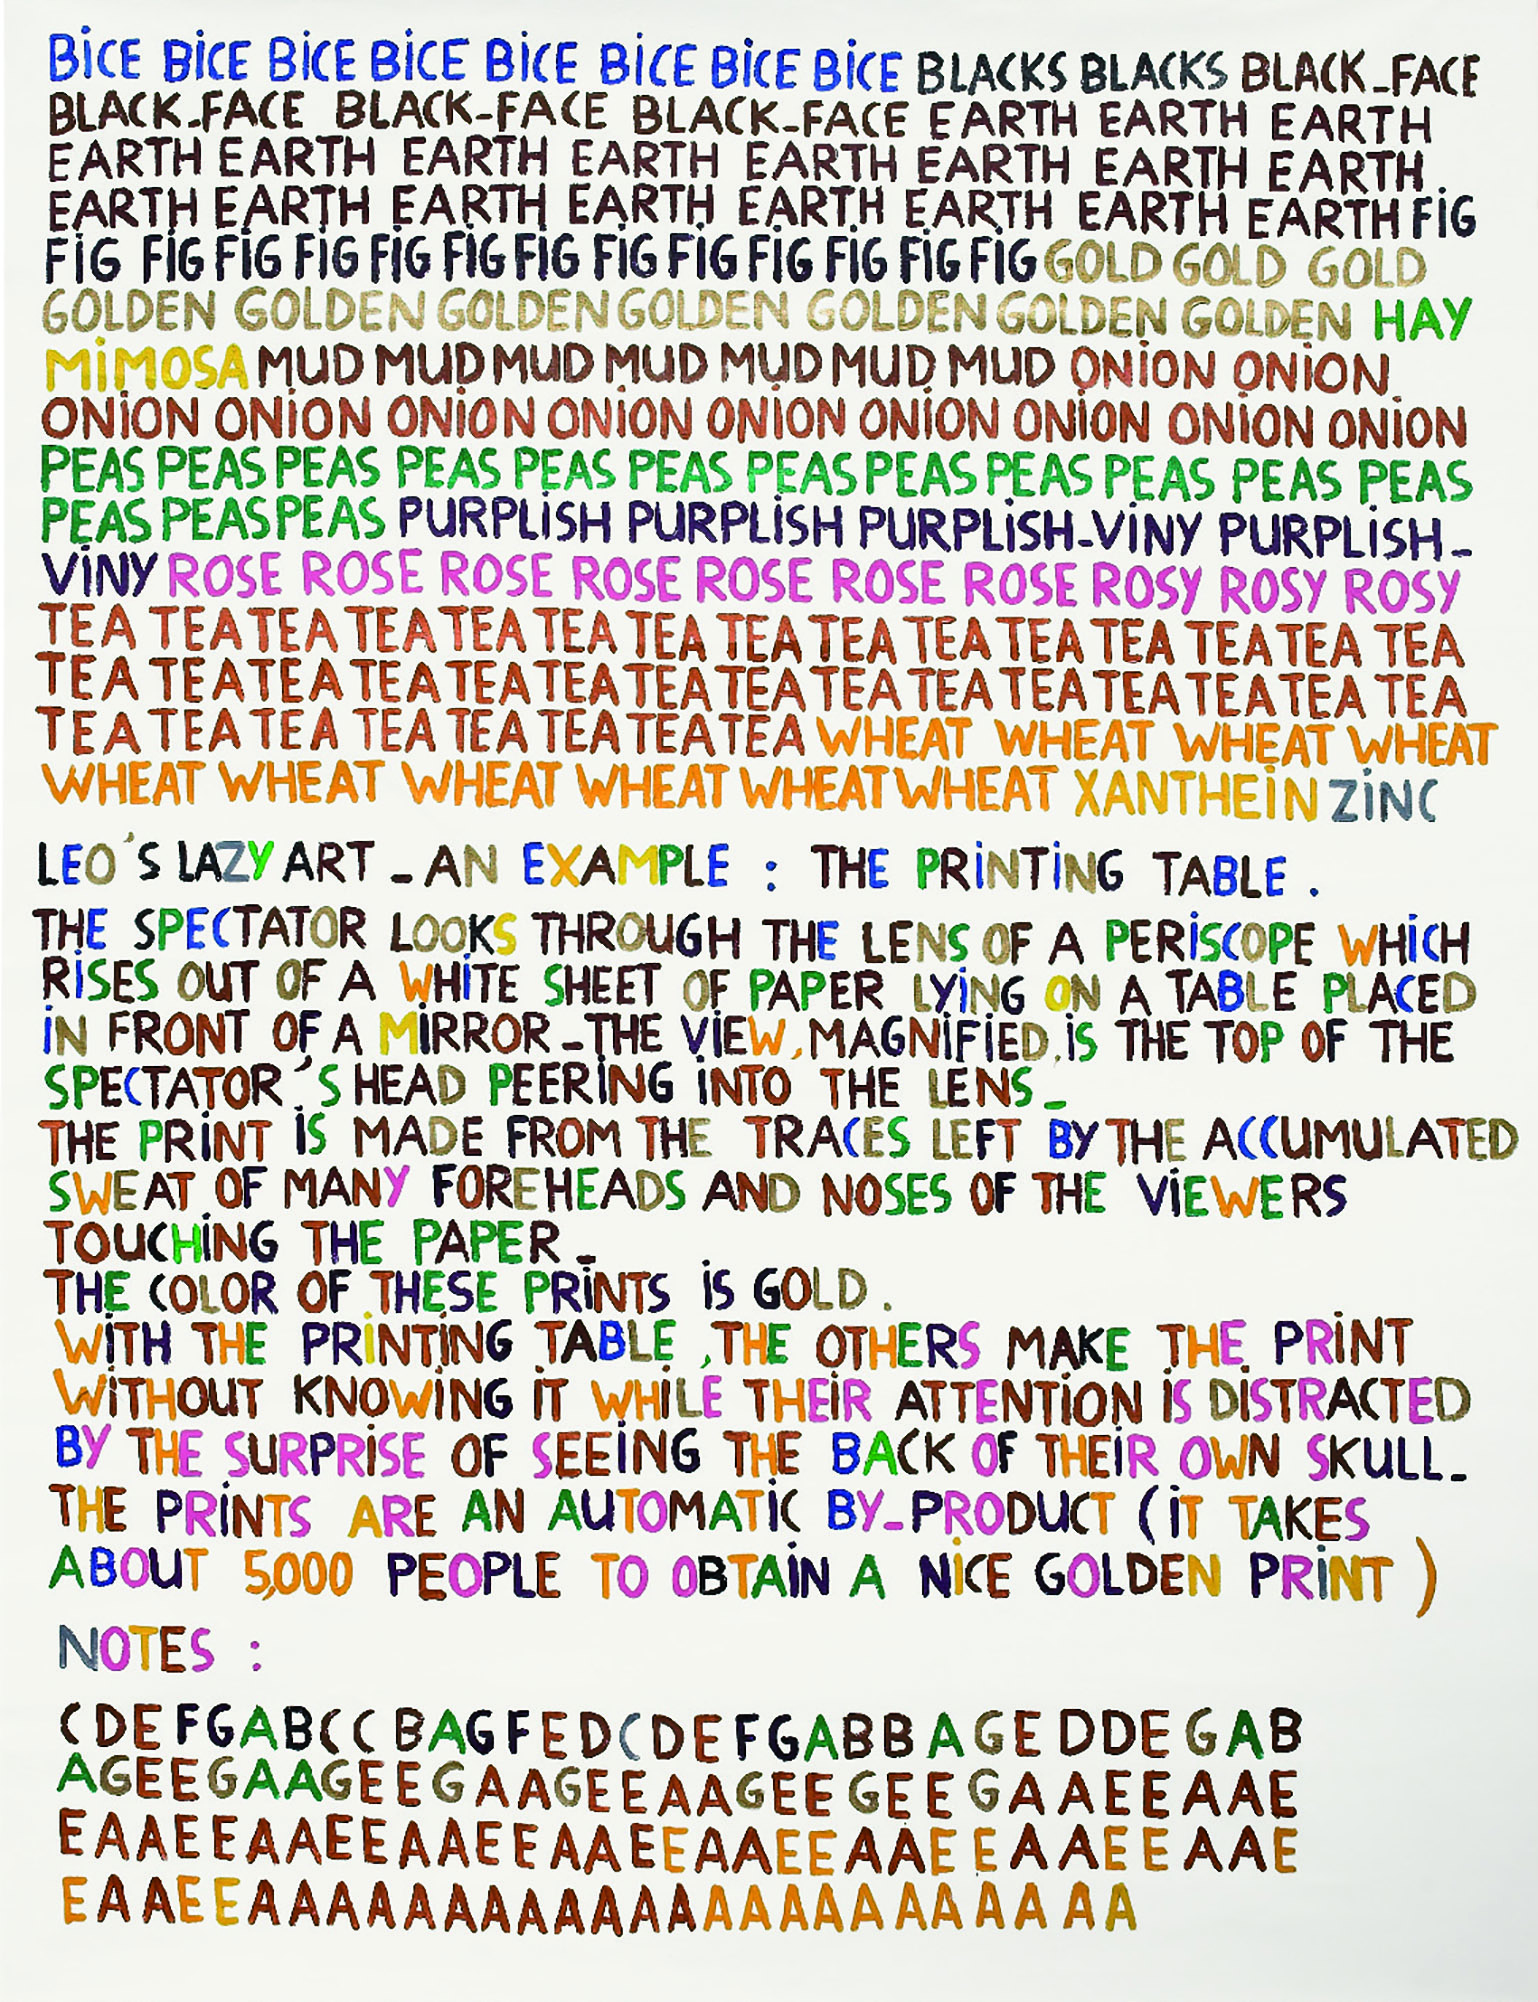 BiCE BiCE BiCE BiCE BiCE BiCE BiCE BiCE BLACKS BLACKS BLACK_FACE
BLACK_FACE BLACK-FACE BLACK-FACE EARTH EARTH EARTH
EARTH EARTH EARTH EARTH EARTH EARTH EARTH EARTH
EARTH EARTH EARTH EARTH EARTH EARTH EARTH EARTH FiG
FiG FiG FiG FiG FiG FiG FiG FiG FiG FiG FiG FiG FiG GOLD GOLD GOLD
GOLDEN GOLDEN GOLDEN GOLDEN GOLDEN GOLDEN GOLDEN HAY
MiMOSA MUD MUD MUD MUD MUD MUD MUD ONiON ONiON
ONiON ONiON ONiON ONiON ONiON ONiON ONiON ONiON ONiON
PEAS PEAS PEAS PEAS PEAS PEAS PEAS PEAS PEAS PEAS PEAS PEAS
PEAS PEAS PEAS PURPLiSH PURPLiSH PURPLiSH-ViNY PURPLiSH_
ViNY ROSE ROSE ROSE ROSE ROSE ROSE ROSE ROSY ROSY ROSY
TEA TEA TEA TEA TEA TEA TEA TEA TEA TEA TEA TEA TEA TEA TEA
TEA TEA TEA TEA TEA TEA TEA TEA TEA TEA TEA TEA TEA TEA TEA
TEA TEA TEA TEA TEA TEA TEA TEA WHEAT WHEAT WHEAT WHEAT
WHEAT WHEAT WHEAT WHEAT WHEAT WHEAT XANTHEiN ZiNC
LEO'S LAZY ART _ AN EXAMPLE : THE PRiNTiNG TABLE .
THE SPECTATOR LOOKS THROUGH THE LENS OF A PERiSCOPE WHiCH
RiSES OUT OF A WHiTE SHEET OF PAPER LYiNG ON A TABLE PLACED
iN FRONT OF A MiRROR _ THE ViEW, MAGNiFiED, iS THE TOP OF THE
SPECTATOR'S HEAD PEERiNG iNTO THE LENS _
THE PRiNT iS MADE FROM THE TRACES LEFT BY THE ACCUMULATED
SWEAT OF MANY FOREHEADS AND NOSES OF THE ViEWERS
TOUCHiNG THE PAPER _
THE COLOR OF THESE PRiNTS iS GOLD .
WiTH THE PRiNTiNG TABLE , THE OTHERS MAKE THE PRiNT
WiTHOUT KNOWiNG iT WHiLE THEiR ATTENTiON iS DiSTRACTED
BY THE SURPRiSE OF SEEiNG THE BACK OF THEiR OWN SKULL _
THE PRiNTS ARE AN AUTOMATiC BY_PRODUCT (iT TAKES
ABOUT 5,000 PEOPLE TO OBTAiN A NiCE GOLDEN PRiNT )
NOTES :
C D E F G A B C C B A G F E D C D E F G A B B A G E D D E G A B
A G E E G A A G E E G A A G E E A A G E E G E E G A A E E A A E
E A A E E A A E E A A E E A A E E A A E E A A E E A A E E A A E
E A A E E A A A A A A A A A A A A A A A A A A A A A A A